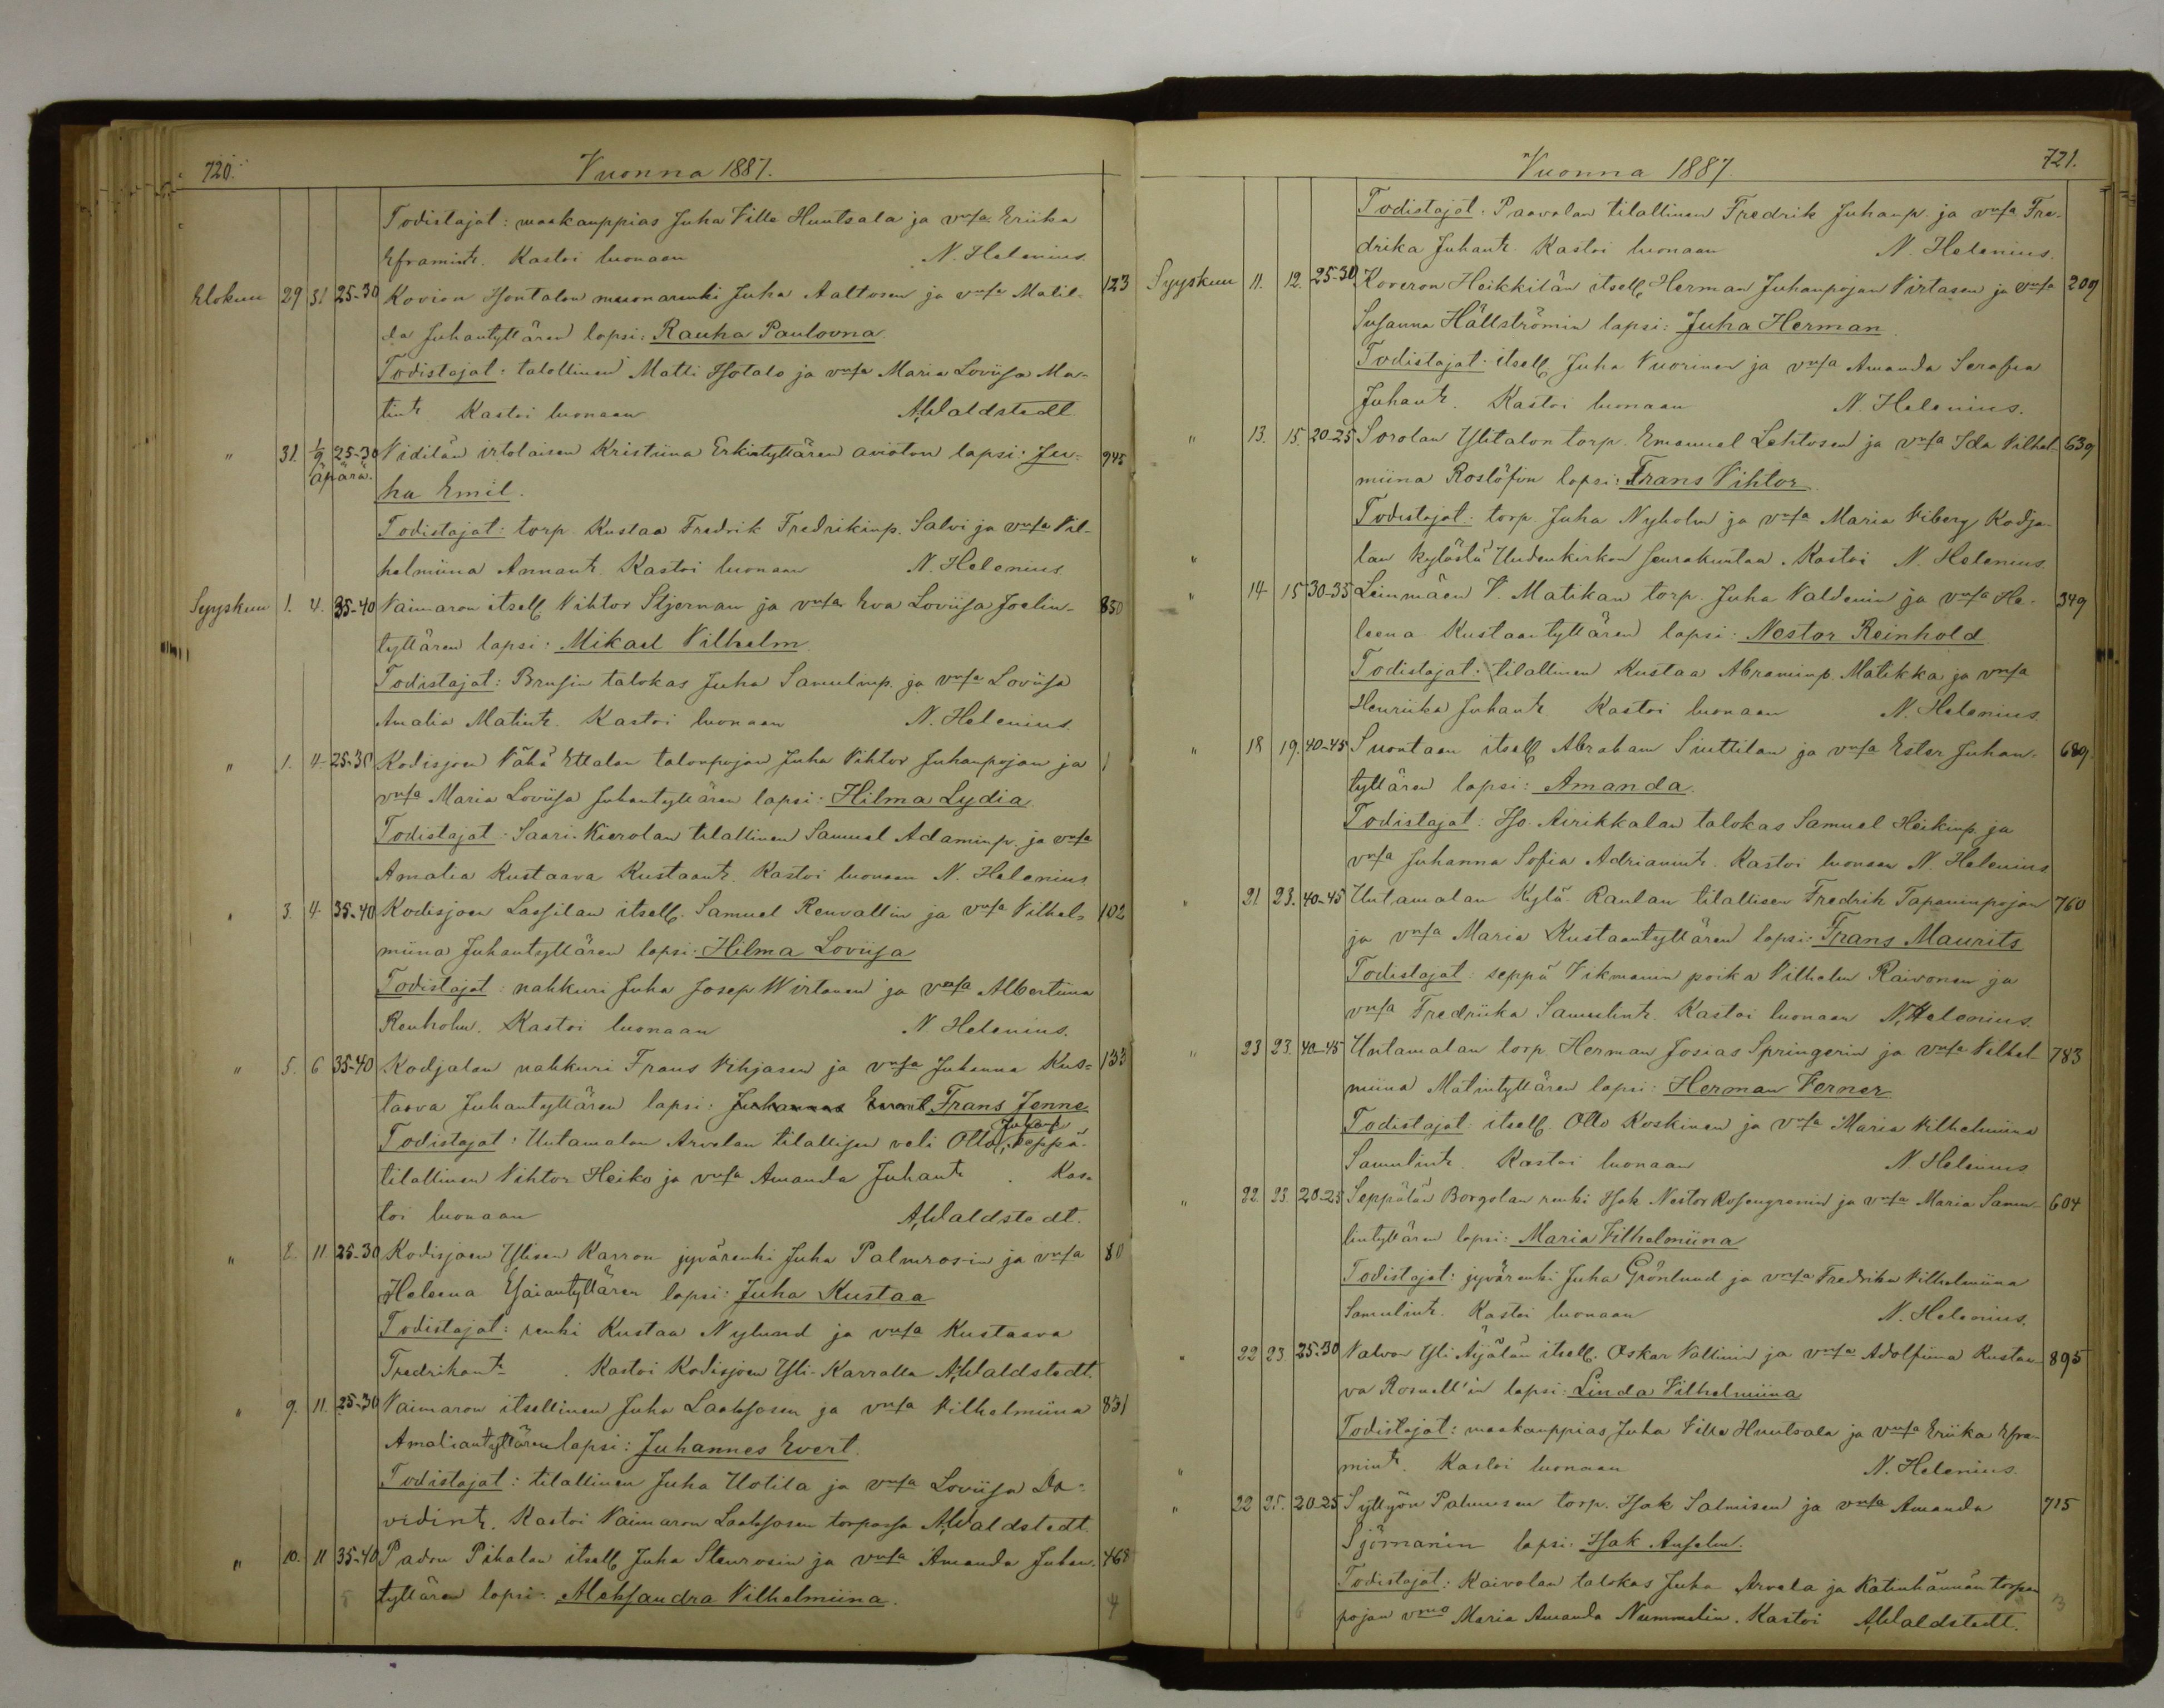 720.
Vuonna 1887.
Todistajat: maakauppias Juha Ville Huntsala ja vmsa Eriika
Eframintr. Kastoi luonaan N. Helenius.
Elokuu 29 31 25-30 Kovion Isontalon muonarenki Juha Aaltosen ja vmsa Matil- 123
da Juhantyttären lapsi: Rauha Paulovna.
Todistajat: talollinen Matti Isotalo ja vmsa Maria Loviisa Ma-
tintr Kastoi luonaan A. Waldstedt.
" 31. 1/9 25-30 Vidilän irtolaisen Kristiina Erkintyttären avioton lapsi: Ju- 945
äpärä. ha Emil.
Todistajat: torp. Kustaa Fredrik Fredrikinp. Salvi ja vmsa Vil-
helmiina Annantr. Kastoi luonaan N. Helenius
Syyskuu 1. 4. 35-40 Vaimaron itsell. Vihtor Stjernan ja vmsa Eva Loviisa Joelin- 850
tyttären lapsi: Mikael Vilhelm.
Todistajat: Brusin talokas Juha Samulinp. ja vmsa Loviisa
Amalia Matintr. Kastoi luonaan N. Helenius.
" 1. 4 25-30 Kodisjoen Vähä Ettalan talonpojan Juha Vihtor Juhanpojan ja 1
vmsa Maria Loviisa Juhantyttären lapsi: Hilma Lydia.
Todistajat: Saari-Kierolan tilallinen Samuel Adaminp. ja vmsa
Amalia Kustaava Kustaantr. Kastoi luonaan N. Helenius
" 3. 4. 35-40 Kodisjoen Lassilan itsell. Samuel Renvallin ja vmsa Vilhel- 102
miina Juhantyttären lapsi: Hilma Loviisa
Todistajat: nahkuri Juha Josep Wirtanen ja vmsa Albertiina
Renholm. Kastoi luonaan N Helenius.
" 5. 6 35-40 Kodjalan nahkuri Frans Vihjasen ja vmsa Juhanna Kus- 133
taava Juhantyttären lapsi: Juhannes Evert Frans Jenne
Juhanp.
Todistajat: Untamalan Arvelan tilallisen veli Otto, Seppä-
tilallinen Vihtor Heiko ja vmsa Amanda Juhantr. Kas-
toi luonaan A. Waldstedt.
" 8. 11 25-30 Kodisjoen Ylisen Karron jyvärenki Juha Palmrosin ja vmsa 80
Heleena Esaiantyttären lapsi: Juha Kustaa
Todistajat: renki Kustaa Nylund ja vmsa Kustaava
Fredrikantr. Kastoi Kodisjoen Yli-Karralla A. Waldstedt.
" 9. 11. 25-30 Vaimaron itsellinen Juha Laaksosen ja vmsa Vilhelmiina 831
Amaliantyttären lapsi: Juhannes Evert.
Todistajat: tilallinen Juha Uotila ja vmsa Loviisa Da-
vidintr. Kastoi Vaimaron Laaksosen torpassa A. Waldstedt.
" 10. 11 35-40 Padon Pihalan itsell. Juha Stenrosin ja vmsa Amanda Juhan- 468
tyttären lapsi: Aleksandra Vilhelmiina.
Vuonna 1887
721.
Todistajat: Paavolan tilallinen Fredrik Juhanp. ja vmsa Fre-
drika Juhantr. Kastoi luonaan N. Helenius.
Syyskuu 11. 12. 25-30 Koveron Heikkilän itsell. Herman Juhanpojan Virtasen ja vmsa 209
Susanna Hällströmin lapsi: Juha Herman.
Todistajat: itsell. Juha Vuorinen ja vmsa Amanda Serafia
Juhantr. Kastoi luonaan N. Helenius.
" 13. 15. 20-25 Sorolan Ylitalon torp. Emanuel Lehtosen ja vmsa Ida Vilhel- 639
miina Roslöfin lapsi: Frans Vihtor.
Todistajat: torp. Juha Nyholm ja vmsa Maria Viberg Kodja-
" lan kylästä Uudenkirkon seurakuntaa. Kastoi N. Helenius.
" 14 15 30-35 Leinmäen V. Matikan torp. Juha Valdenin ja vmsa He- 349
leena Kustaantyttären lapsi: Nestor Reinhold
Todistajat: tilallinen Kustaa Abraminp. Matikka ja vmsa
Henriika Juhantr Kastoi luonaan N. Helenius.
" 18 19. 40-45 Suontaan itsell. Abraham Suttilan ja vmsa Ester Juhan- 689.
tyttären lapsi: Amanda.
Todistajat: Iso-Airikkalan talokas Samuel Heikinp. ja
vmsa Juhanna Sofia Adriamintr. Kastoi luonaan N. Helenius
" 21 23. 40-45 Untamalan Kylä-Raulan tilallisen Fredrik Tapaninpojan 760
ja vmsa Maria Kustaantyttären lapsi: Frans Maurits
Todistajat: seppä Vikmanin poika Vilhelm Raivonen ja
vmsa Fredriika Samulintr. Kastoi luonaan N. Helenius.
" 23 23. 40-45 Untamalan torp. Herman Josias Springerin ja vmsa Vilhel- 783
miina Matintyttären lapsi: Herman Verner
Todistajat: itsell. Otto Koskinen ja vmsa Maria Vilhelmiina
Samulintr. Kastoi luonaan N. Helenius
" 22 23. 20-25 Seppälän Borgolan renki Isak Nestor Rosengrenin ja vmsa Maria Samu- 604
lintyttären lapsi: Maria Vilhelmiina
Todistajat: jyvärenki Juha Grönlund ja vmsa Fredrika Vilhelmiina
Samulintr. Kastoi luonaan N. Helenius.
" 22 23. 25-30 Valvon Yli Äijälän itsell. Oskar Vallinin ja vmsa Adolfiina Kustaa- 895
va Rosnell'in lapsi: Linda Vilhelmiina
Todistajat: maakauppias Juha Ville Huntsala ja vmsa Eriika Efra-
" mintr. Kastoi luonaan N. Helenius.
" 22 25. 20-25 Syttyön Palmusen torp. Isak Salmisen ja vmsa Amanda 715
Sjömanin lapsi: Isak Anselm.
Todistajat: Kaivolan talokas Juha Arvela ja Katinhännän torpan
pojan vmo Maria Amanda Nummelin. Kastoi A. Waldstedt.